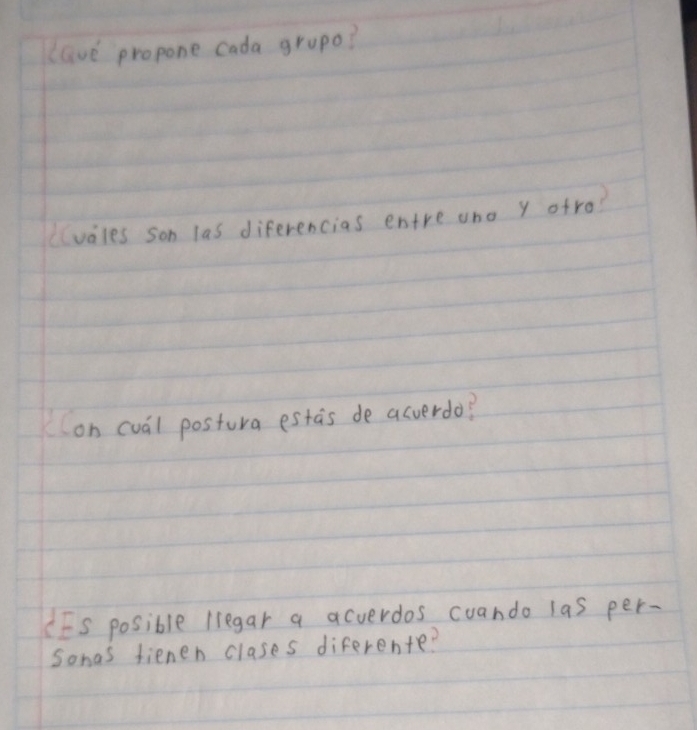 ¿Qué propone cada grupo?
¿Cuáles son las diferencias entre uno y otro?
¿Con cuál postura estás de acuerdo?
¿Es posible llegar a acuerdos cuando las per-
sonas tienen clases diferente?